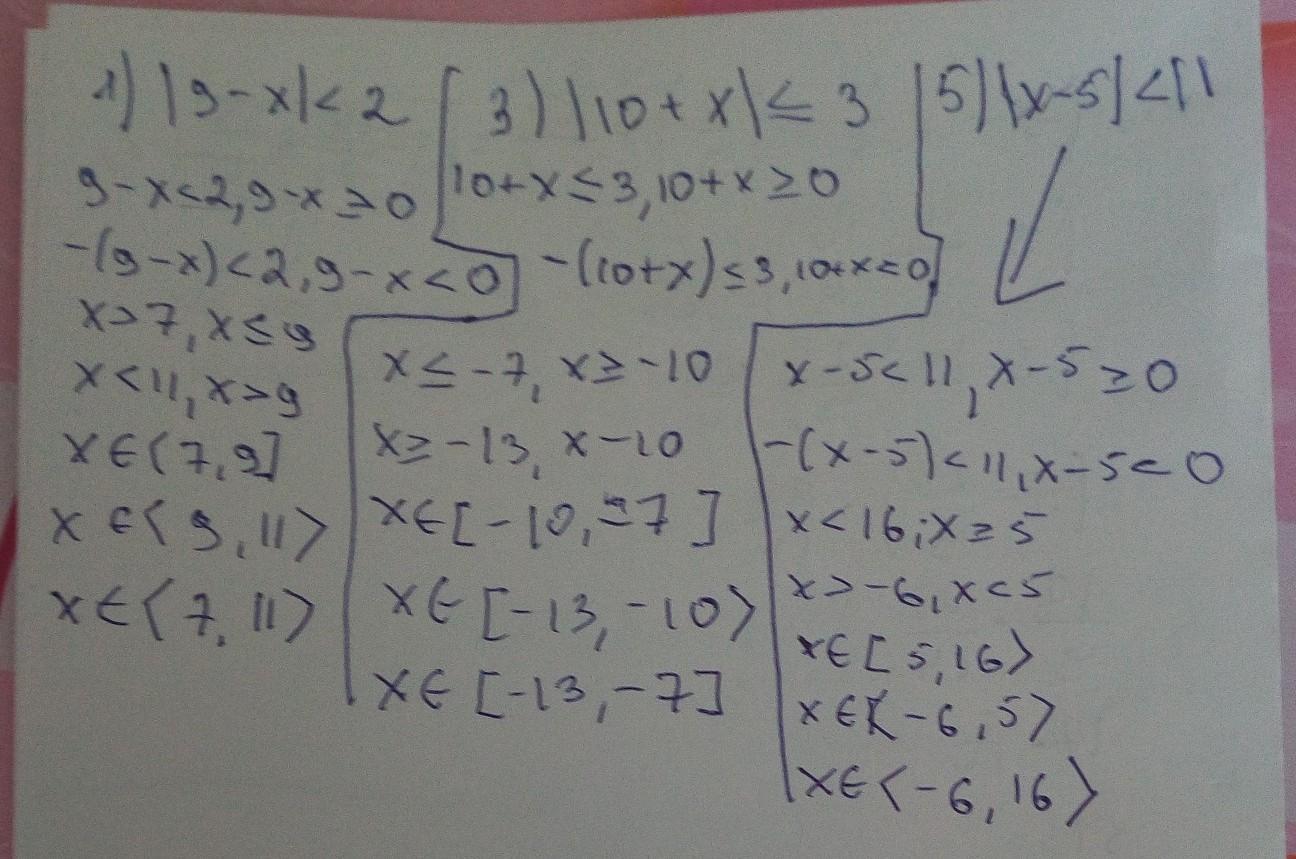 1) |9-x|<2
9-x<2,9-x≥0
-(9-x)<2,9-x<0
x>7,x≤9
x<11,x>9
x∈⟨7,9]
x∈⟨9,11⟩
x∈⟨7,11⟩
3) |10+x|≤3
10+x≤3,10+x≥0
-(10+x)≤3,10+x<0
x≤-7, x≥-10
x≥-13, x-10
x∈[-10,-7]
x∈[-13,-10⟩
x∈[-13,-7]
5) |x-5|<11
x-5<11, x-5≥0
-(x-5)<11,x-5<0
x<16;x≥5
x>-6,x<5
x∈[5,16⟩
x∈⟨-6,5⟩
x∈⟨-6,16⟩